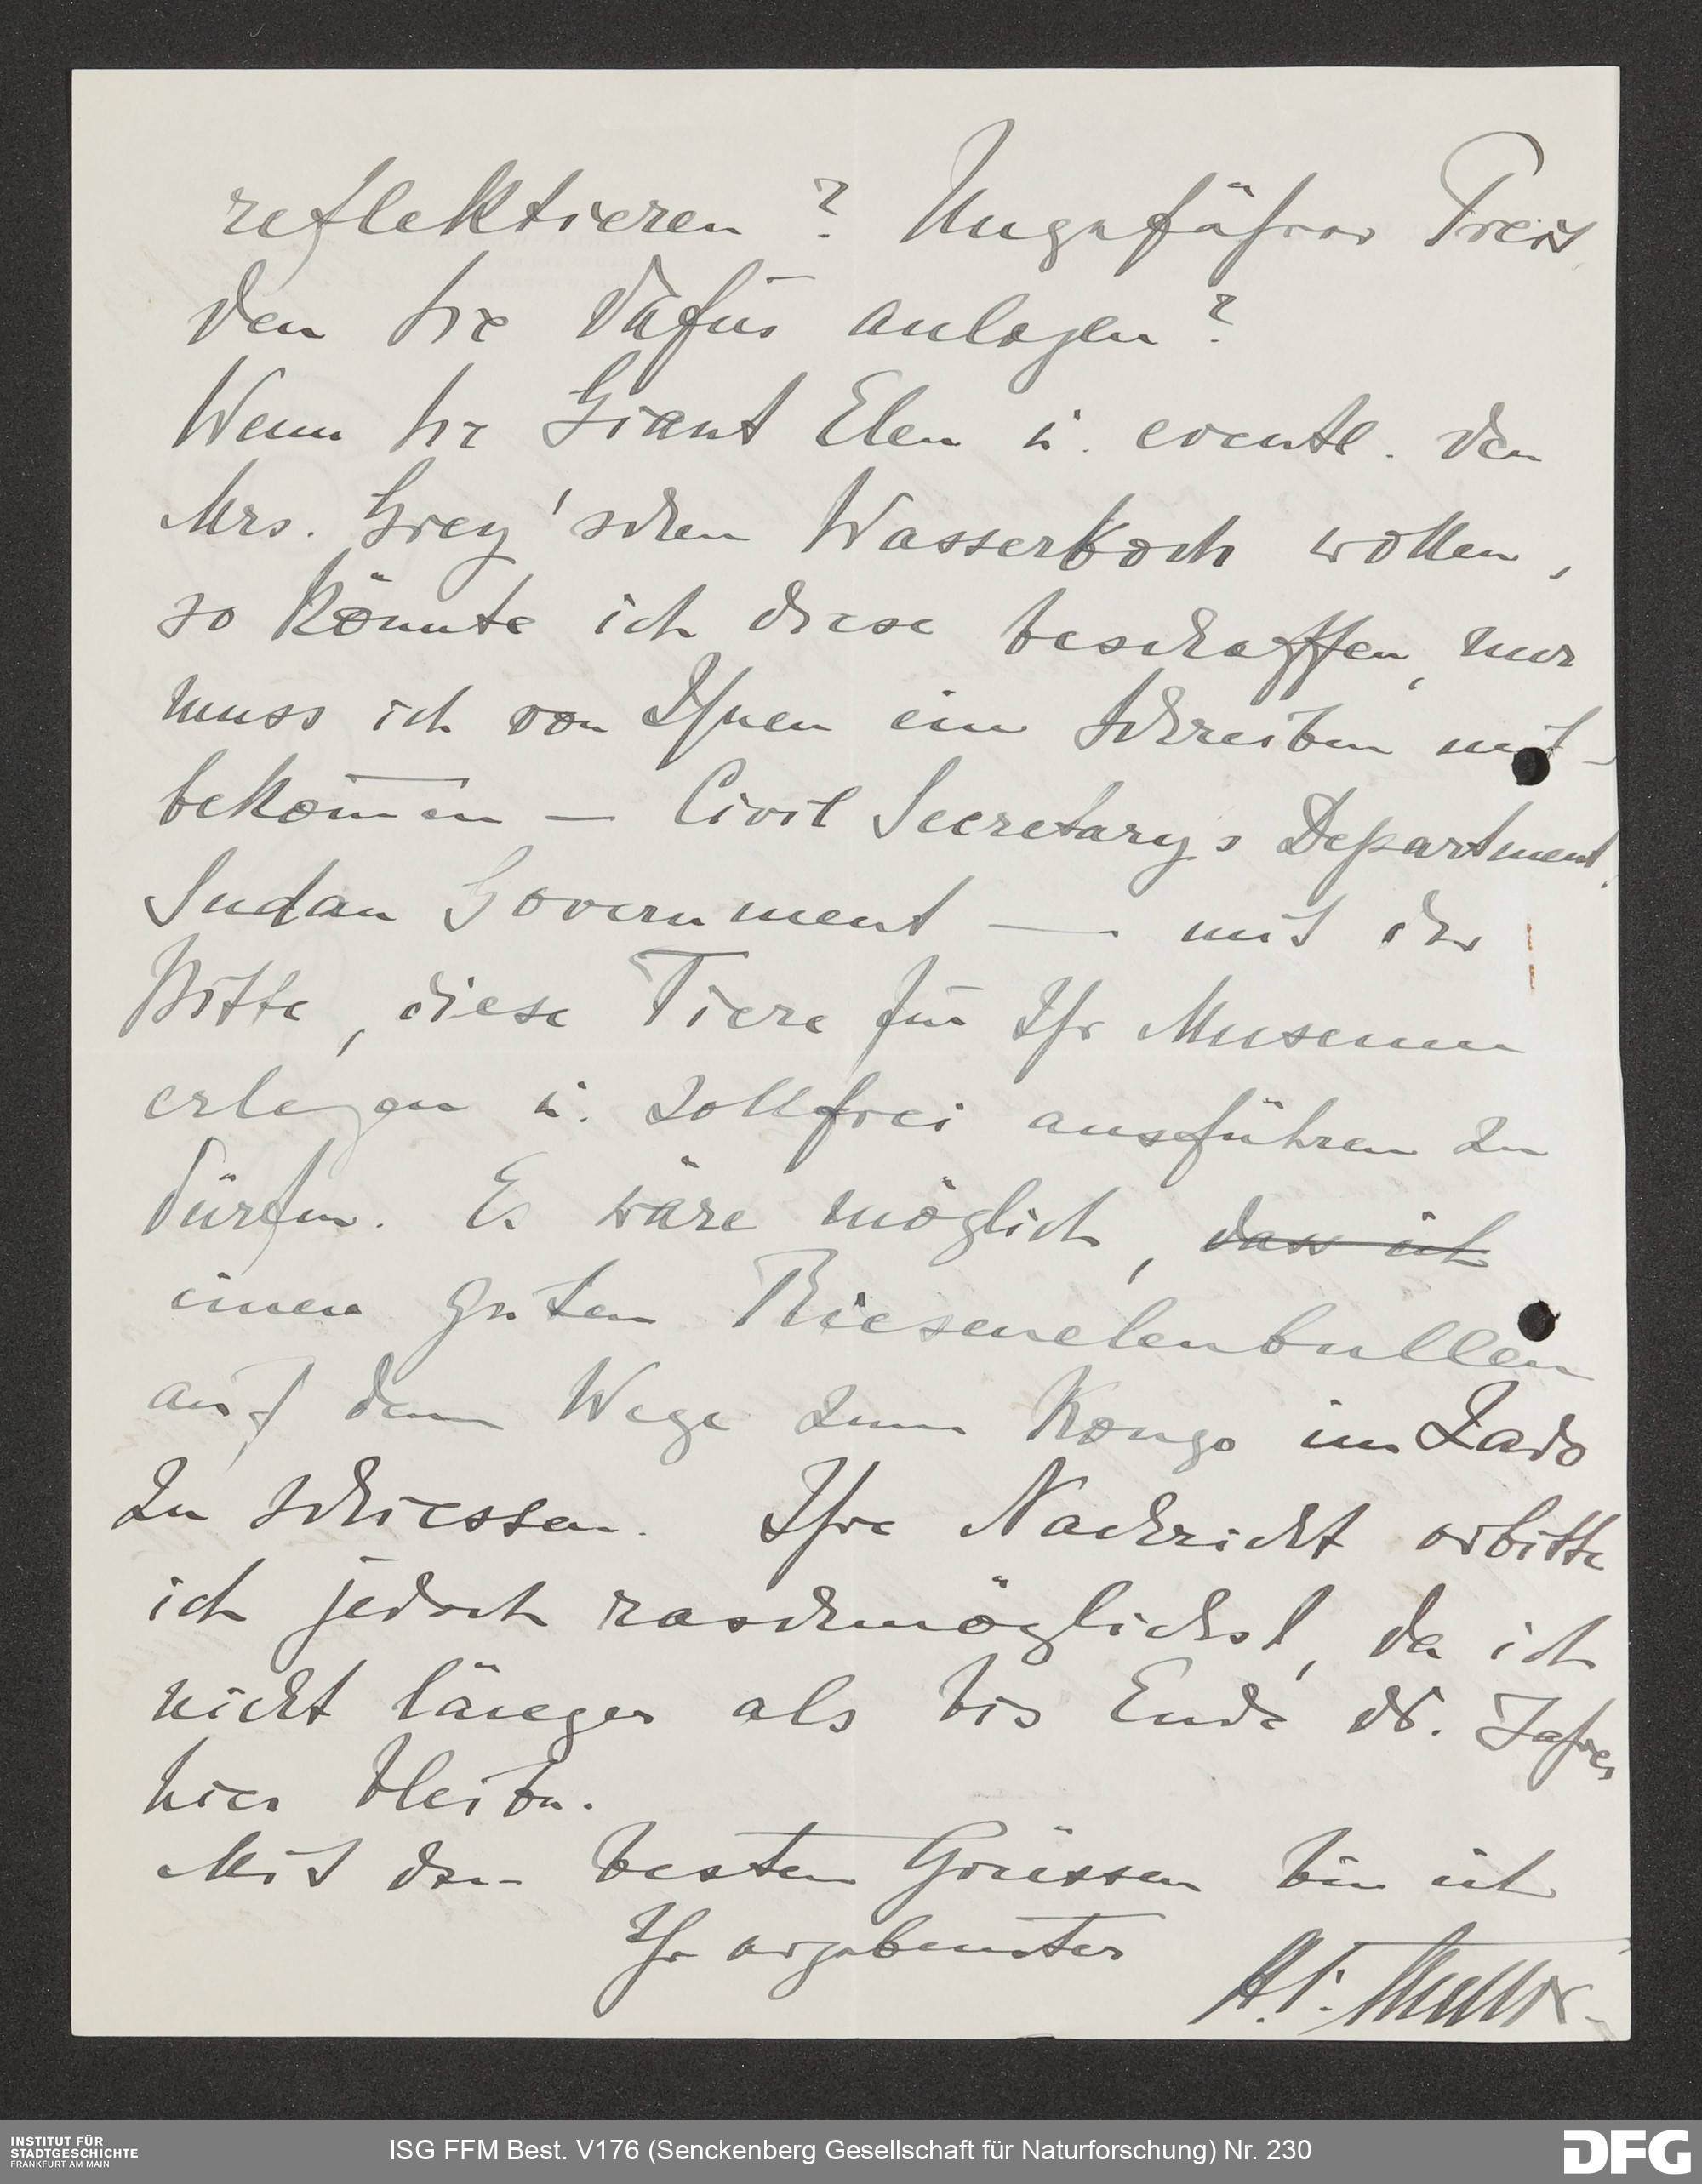 reflektieren? Ungefährer Preis
den Sie dafür anlegen?
Wenn Sie Giant Elen u. eventl. den
Mrs. Grey'schen Wasserbock wollen,
so könnte ich diese beschaffen, nur
muss ich von Ihnen ein Schreiben mit-
bekommen — Civil Secretary's Department,
Sudan Government — mit der
Bitte, diese Tiere für Ihr Museum
erlegen u. zollfrei ausführen zu
dürfen. Es wäre möglich, dass ich
einen guten Riesenelenbullen
auf dem Wege zum Kongo im Lado
zu schiessen. Ihre Nachricht erbitte
ich jedoch raschmöglichst, da ich
nicht länger als bis Ende ds. Jahres
hier bleibe.
Mit den besten Grüssen bin ich
Ihr ergebenster
INSTITUT FÜR
STADTGESCHICHTE
FRANKFURT AM MAIN
ISG FFM Best. V176 (Senckenberg Gesellschaft für Naturforschung) Nr. 230
DFG